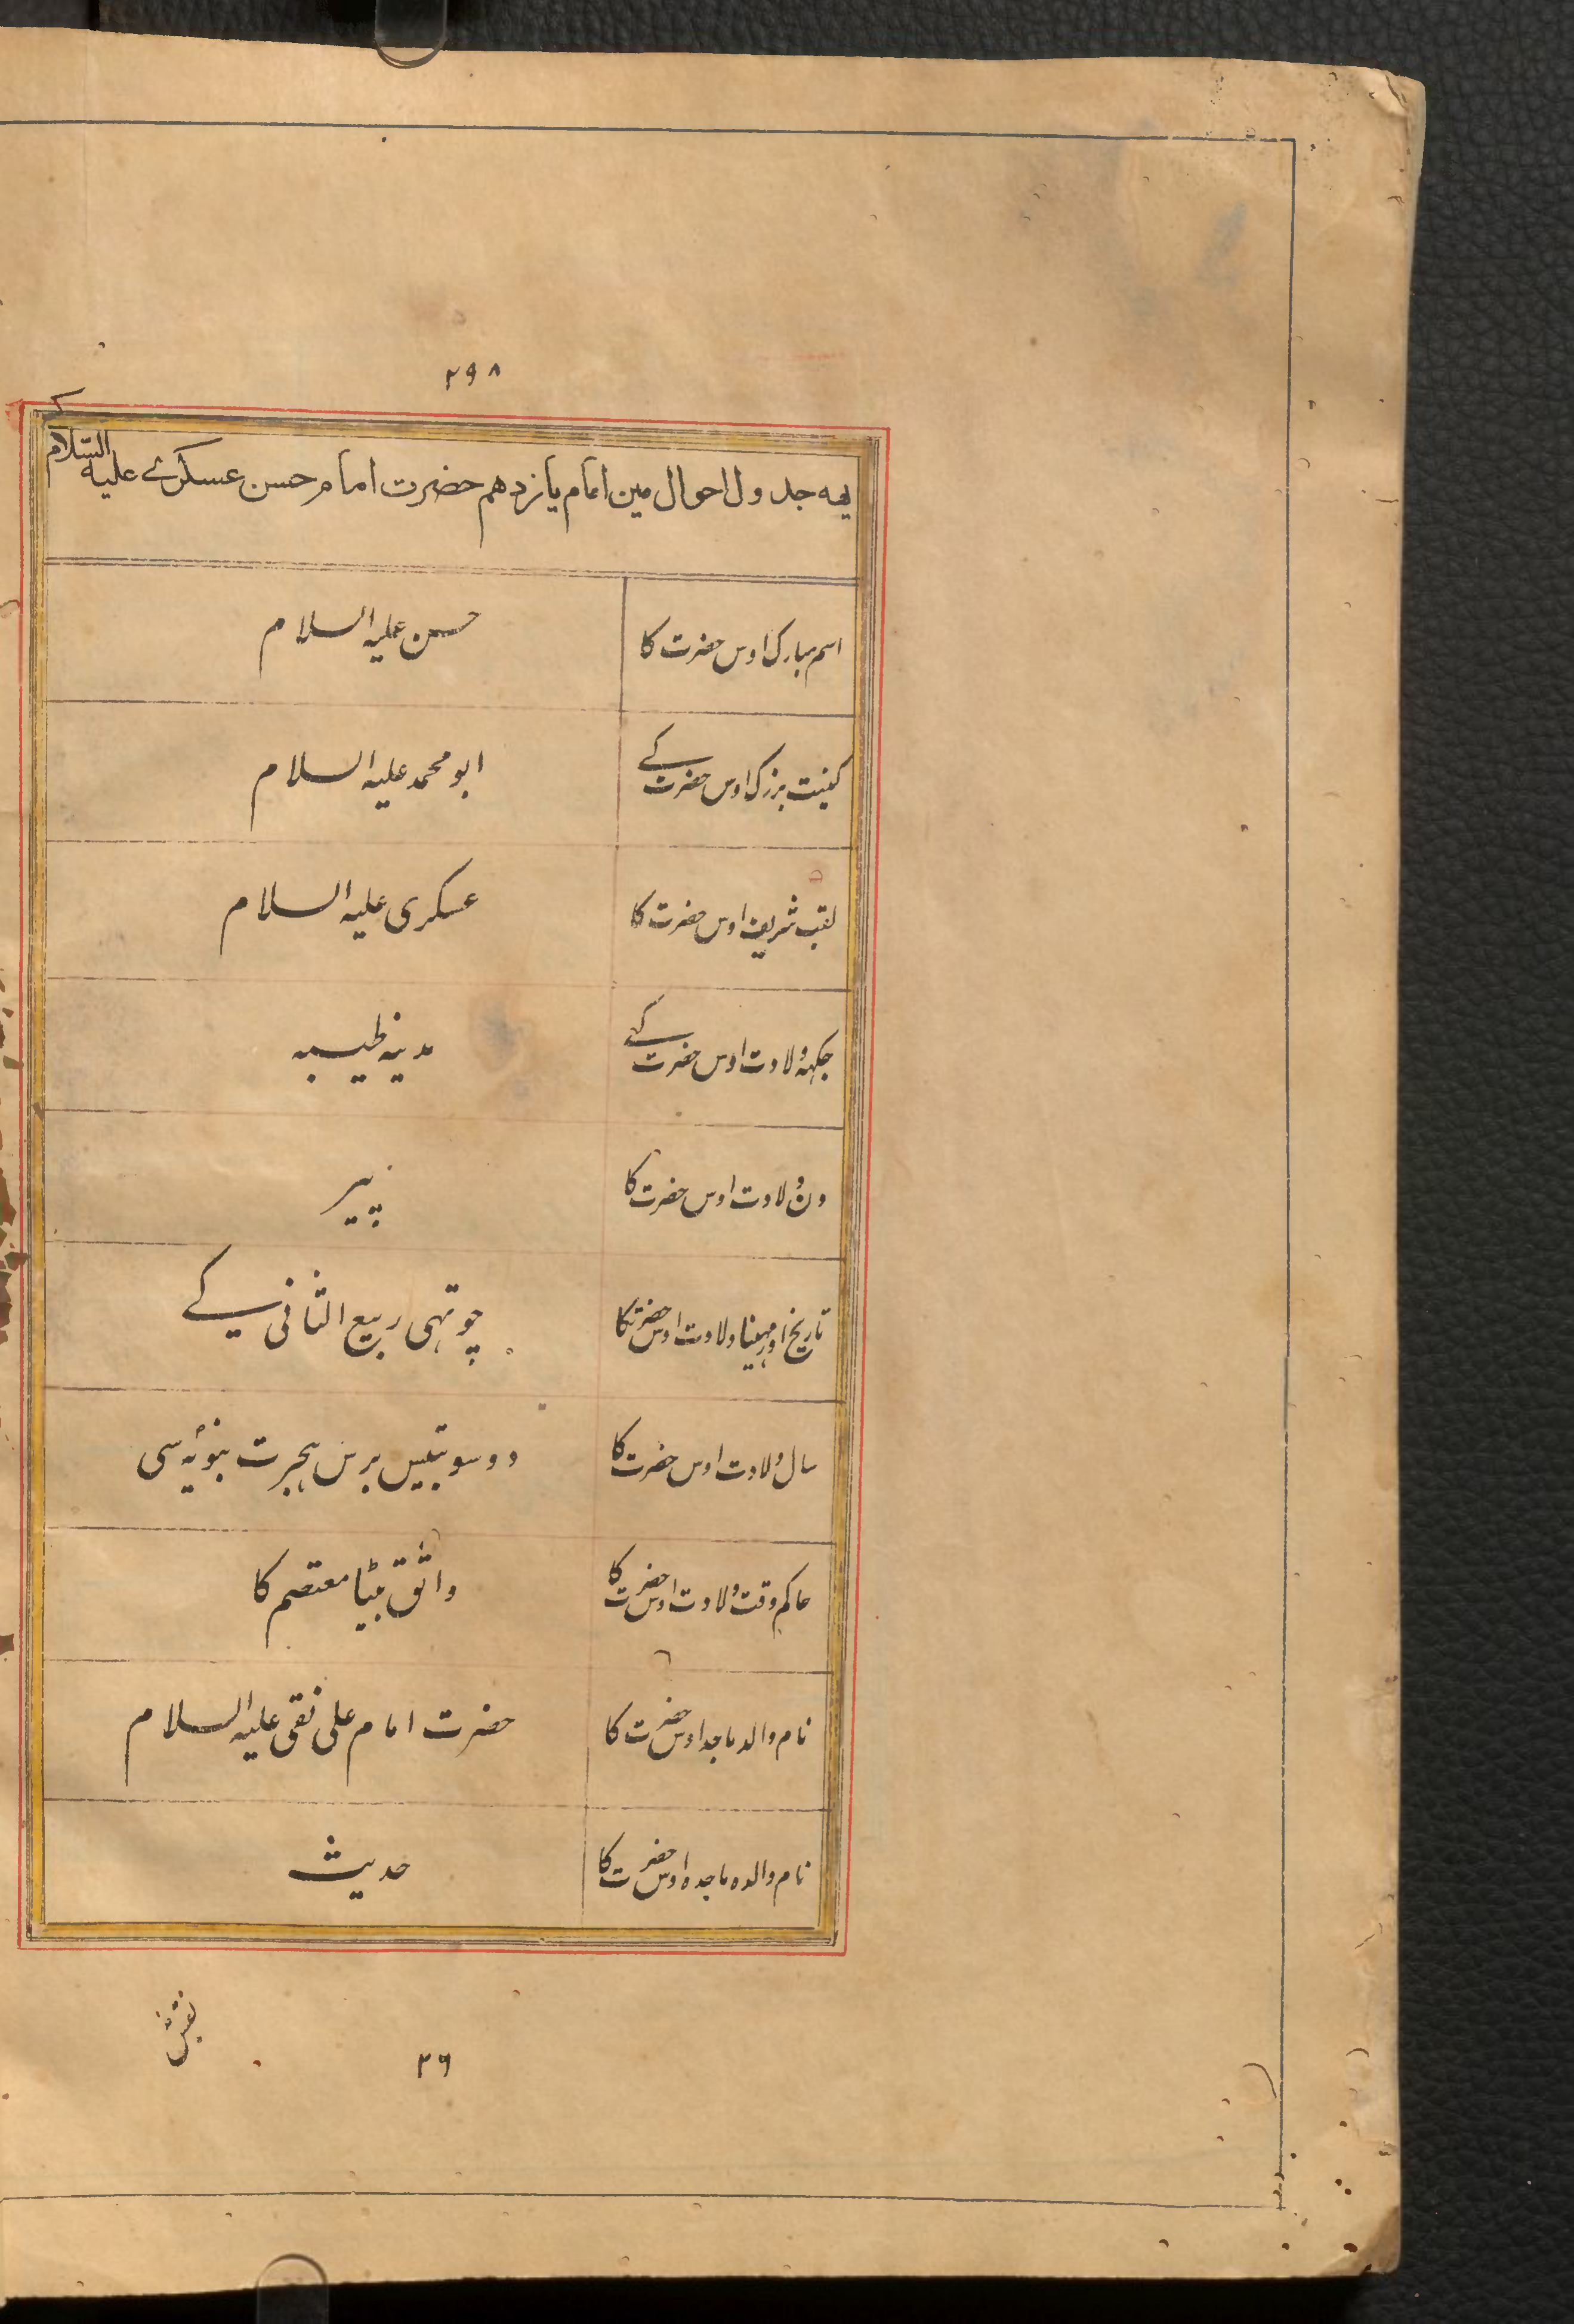 ۲۹۸
یهه جدول احوال مین امام یازدهم حضرت امام حسن عسکرے علیه السّلام کے
اسم مبارک اوس حضرت کا
حسن علیہ السلام
کنیت بزرک اوس حضرت کے
ابو محمد علیہ السلام
لقب شریف اوس حضرت کا
عسکری علیہ السلام
جکہہ ولادت اوس حضرت کے
مدینہ طیبہ
دن ولادت اوس حضرت کا
پیر
تاریخ اور مہینا ولادت اوس حضرت کا
چوتہی ربیع الثانی کے
سال ولادت اوس حضرت کا
دو سو بتیس برس ہجرت نبویہ سی
حاکم وقت ولادت اوس حضرت کا
واثق بیٹا معتصم کا
نام والد ماجد اوس حضرت کا
حضرت امام علی نقی علیہ السلام
نام والدہ ماجدہ اوس حضرت کا
حدیث
نقش
۲۶